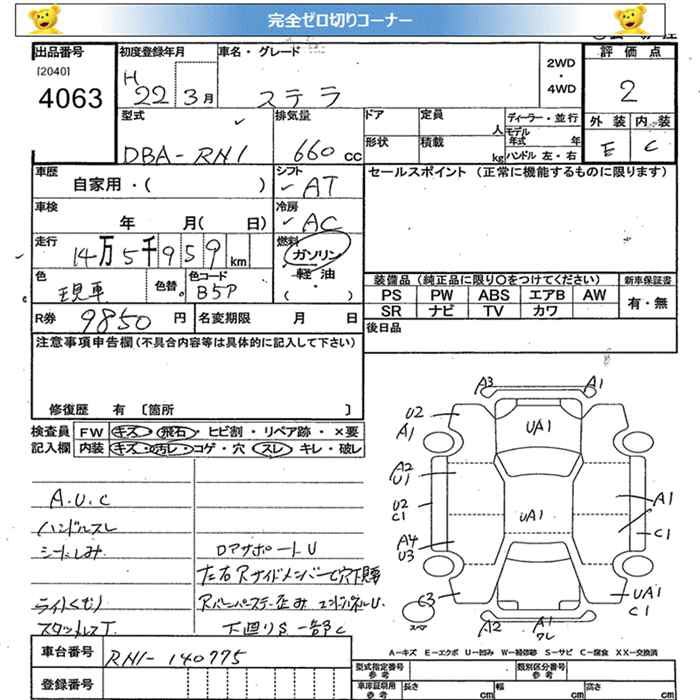 完全ゼロ切りコーナー
出品番号 初度登録年月 車名・グレード 2WD・4WD 評価点
[2040]
4063
H22 3月 ステラ 2
型式 排気量 ドア 定員 人 ディーラー・並行 外装 内装
DBA-RN1 660cc 形状 積載 kg モデル年式 年 ハンドル 左・右 E C
車歴 シフト セールスポイント (正常に機能するものに限ります)
自家用・( ) AT
車検 冷房
年 月( 日) AC
走行 燃料
14万5千959km ガソリン
軽油
・( )
色 色替。 色コード
現車 B5P
装備品 (純正品に限り〇をつけてください) 新車保証書
PS PW ABS エアB AW 有・無
SR ナビ TV カワ
R券 9850円 名変期限 月 日
後日品
注意事項申告欄 (不具合内容等は具体的に記入して下さい)
修復歴 有 〔箇所 〕
検査員 FW キズ・飛石・ヒビ割・リペア跡・×要
記入欄 内装 キズ・汚レ・コゲ・穴 スレ・キレ・破レ
A.U.C
ハンドルスレ
シートしみ
ロアサポートU
左右Rサイドメンバーで穴下腐
ライトくもり
Rバンパーステー歪み エンドパネルU.
スタッドレスT.
下廻りS 一部C
A3 A1
U2
A1
UA1
A2
U1
U2
C1
UA1
A1
C1
A4
U3
C3
UA1
C1
スペア
A2 A1
ワレ
A-キズ E-エクボ U-凹み W-補修跡 S-サビ C-腐食 XX-交換済
車台番号 RN1-140775
登録番号
型式指定番号 参考 類別区分番号 参考
車庫証明用 参考 長さ cm 幅 cm 高さ cm